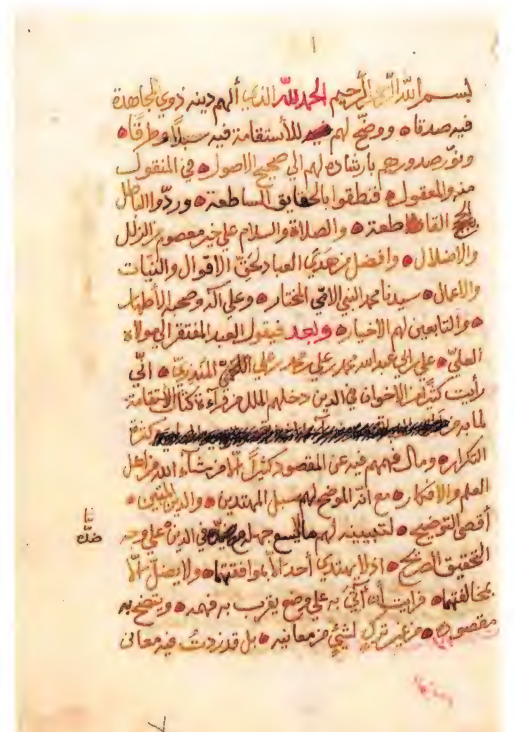 ١
بسم الله الرحمن الرحيم الحمد لله الذي ألهم دينه ذوي المجاهدة
فيه صدقا ووضّح لهم للأستقامة فيه سبيلًا وطرقًا
ونوّر صدورهم بارشاده لهم الي صحيح الاصول في المنقول
منه والمعقول فنطقوا بالحقايق الساطعة وردّوا الباطل
بالحجج القاطعة والصلاة والسلام علي خير معصوم من الزلل
والاضلال وافضل من هَدَي العباد لحق الاقوال والنيّات
والاعمال سيدنا محمد النبي الامّي المختار وعلي آله وصحبه الأطهار
والتابعين لهم الاخيار وبعد فيقول العبد المفتقر الي مولاه
العليّ علي ابن عبد الله محمد بن علي بن محمد بن علي المنذريّ انّي
رأيت كثيرًا من الاخوان في الدين دخلهم الملل من قرآءة كتاب الاستقامة
لما به من كثرة
التكرار ومال فهمهم فيه عن المقصود كثيرًا الّا من شآء الله من اهل
العلم والافكار مع انّه الموضح لهم سبيل المهتدين والدين المبين
أقصي التوضيح لتبيينه لهم ما يسع جهله في الدين علي وجه
ضدّه
التحقيق الصريح اذ لا يهتدي أحد الّا بموافقتها ولا يضل الّا
بمخالفتها فرايت أن آتي به علي وضع يقرب به فهمه ويتضح به
مقصوده من غير ترك لشئ من معانيه بل قد زدتُ فيه معاني